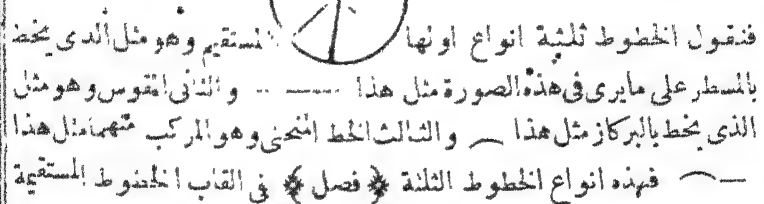 فنقول الخطوط ثلثة انواع اولها المستقيم وهو مثل الذى يخط
بالمسطر على مايرى فى هذه الصورة مثل هذا — والثانى المقوس وهو مثل
الذى يخط بالبركاز مثل هذا ⌒ والثالث الخط المنحنى وهو المركب منهما مثل هذا
⌒— فهذه انواع الخطوط الثلثة ﴿ فصل ﴾ فى القاب الخطوط المستقيمة